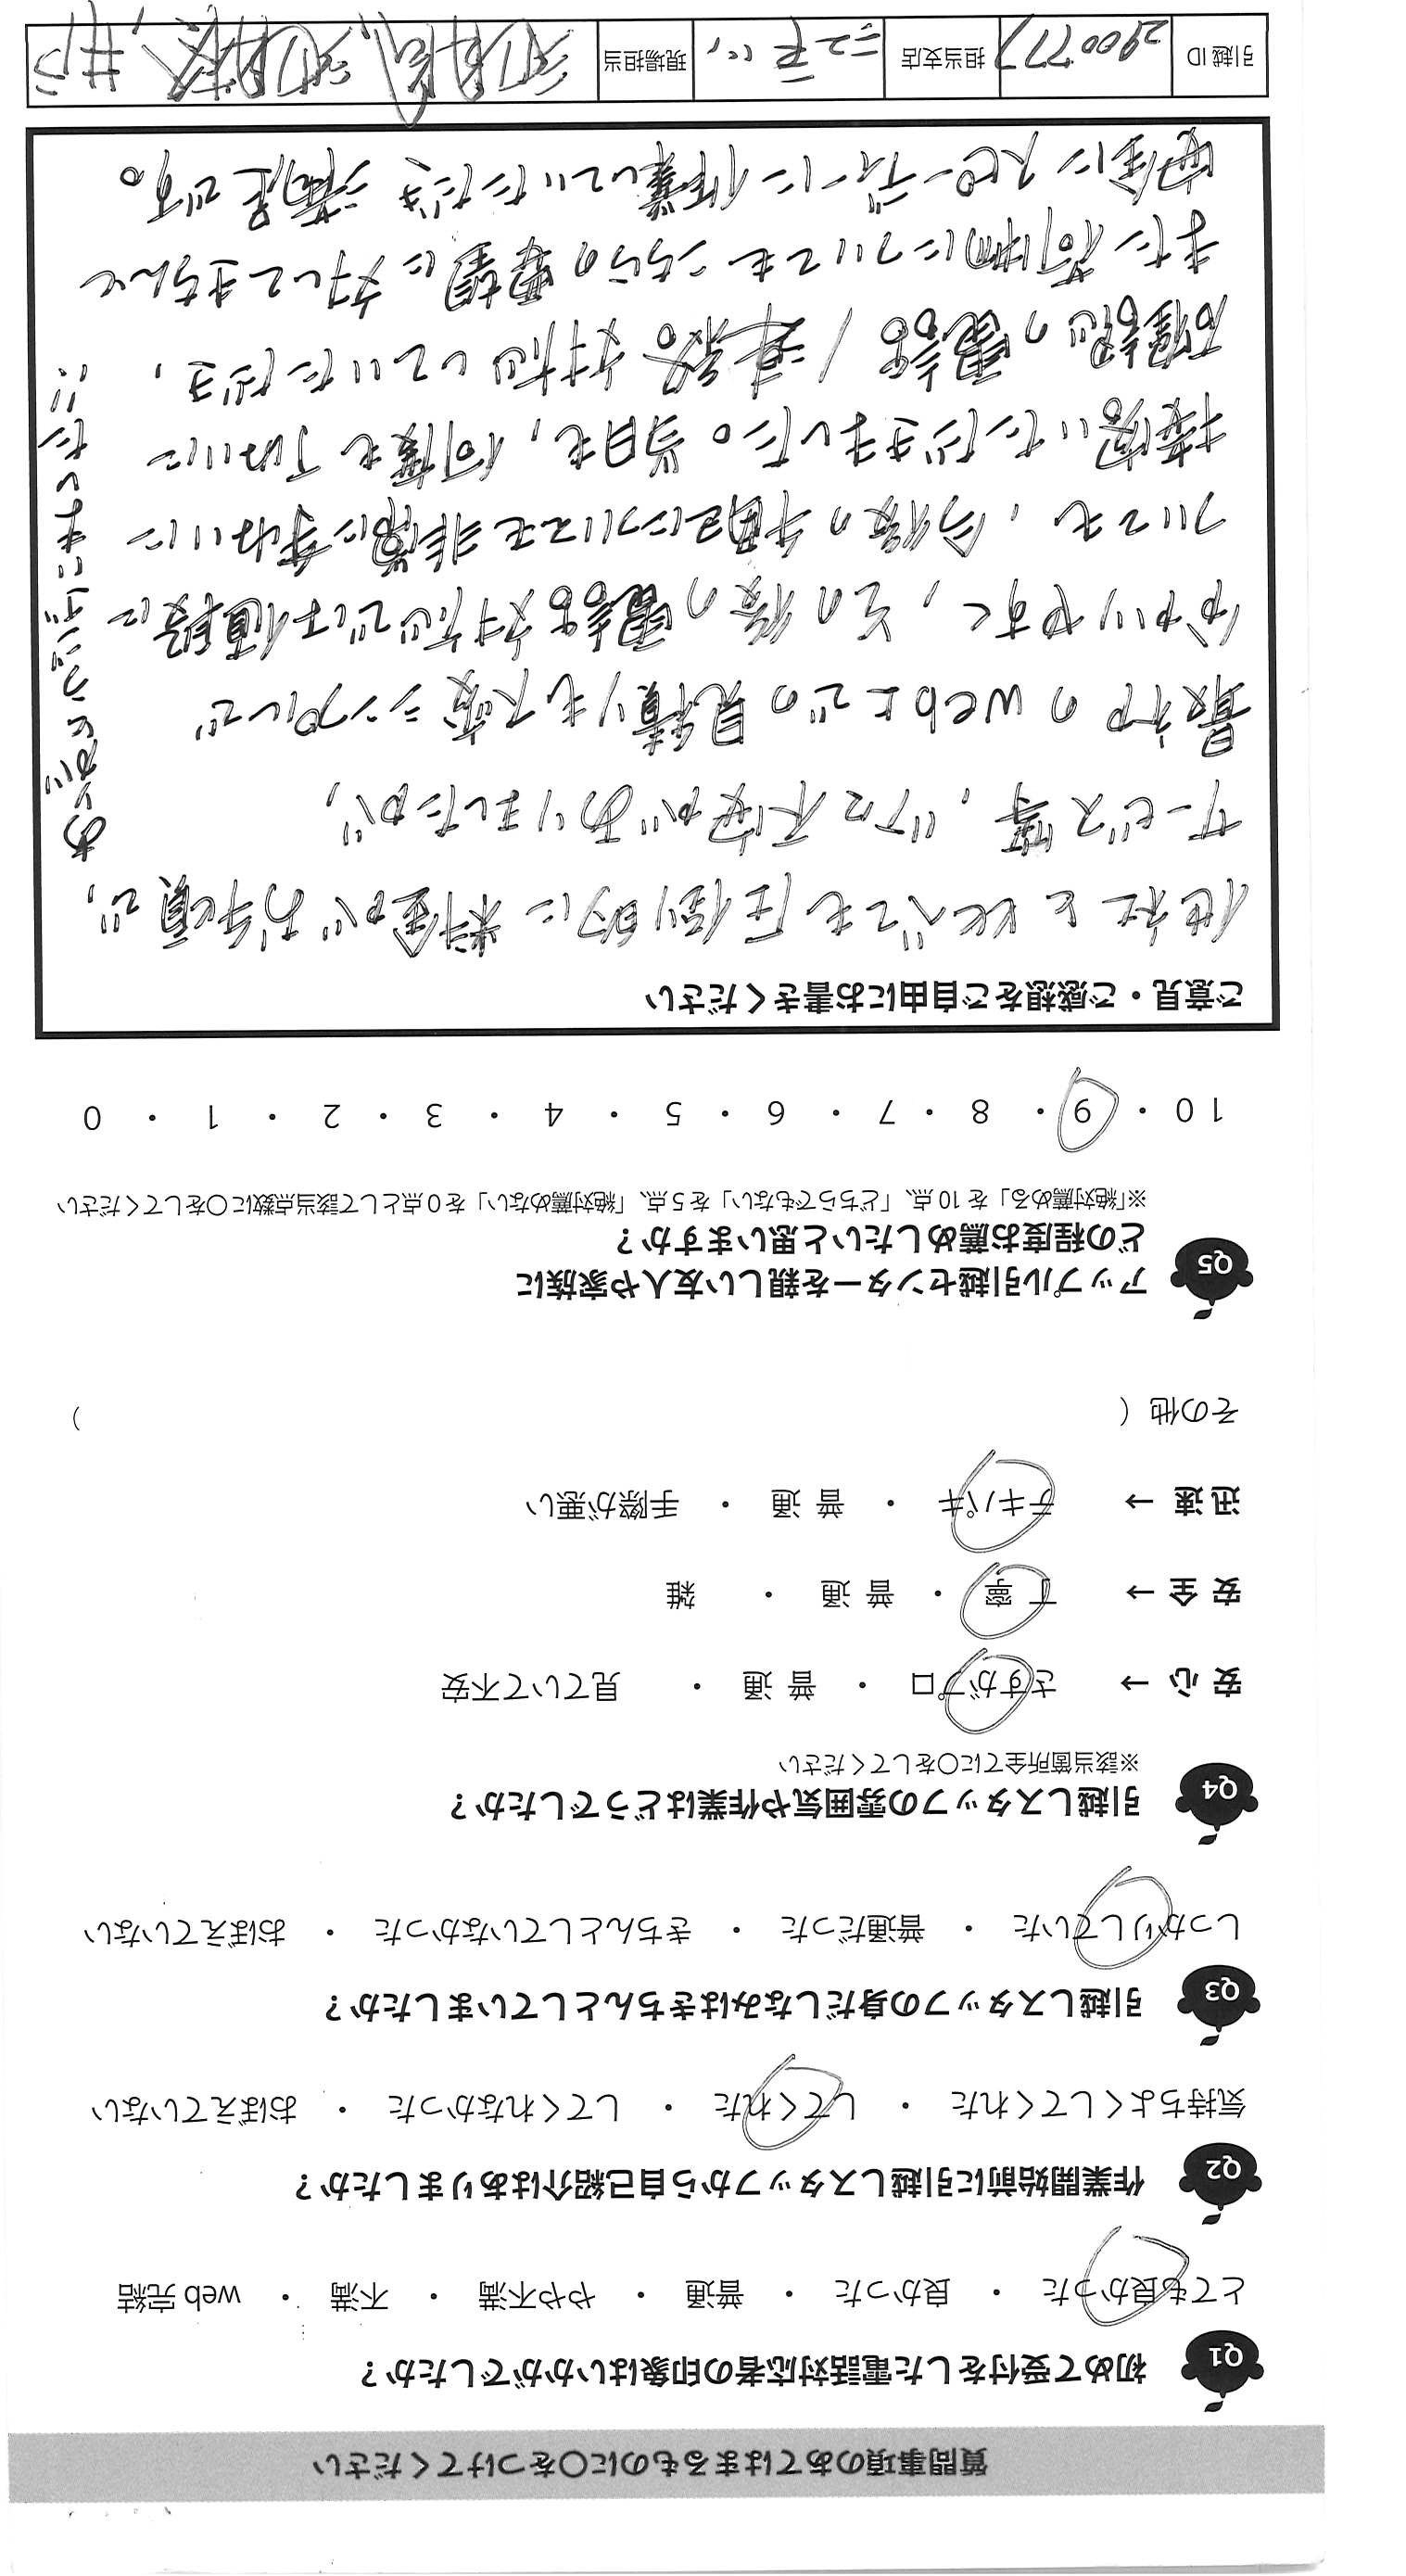 質問事項のあてはまるものに〇をつけてください
Q1 初めて受付をした電話対応者の印象はいかがでしたか？
とても良かった ・ 良かった ・ 普通 ・ やや不満 ・ 不満 ・ web 完結
Q2 作業開始前に引越しスタッフから自己紹介はありましたか？
気持ちよくしてくれた ・ してくれた ・ してくれなかった ・ おぼえていない
Q3 引越しスタッフの身だしなみはきちんとしていましたか？
しっかりしていた ・ 普通だった ・ きちんとしていなかった ・ おぼえていない
Q4 引越しスタッフの雰囲気や作業はどうでしたか？
※該当箇所全てに〇をしてください
安 心 → さすがプロ ・ 普 通 ・ 見ていて不安
安 全 → 丁 寧 ・ 普 通 ・ 雑
迅 速 → テキパキ ・ 普 通 ・ 手際が悪い
その他（ ）
Q5 アップル引越センターを親しい友人や家族に
どの程度お薦めしたいと思いますか？
※「絶対薦める」を 10 点、「どちらでもない」を 5 点、「絶対薦めない」を 0 点として該当点数に〇をしてください
10 ・ 9 ・ 8 ・ 7 ・ 6 ・ 5 ・ 4 ・ 3 ・ 2 ・ 1 ・ 0
ご意見・ご感想をご自由にお書きください
他社と比べても圧倒的に料金がお手頃で、
サービス等、少々不安がありましたが、
最初のWeb上での見積りも大変シンプルで
分かりやすく、その後の電話対応では値段に
ついても、今後の手順についても非常に丁ねいに
接客いただきました。当日も、何度も丁ねいに
確認の電話／連絡対応していただき、
また荷物についてもこちらの要望に対してきちんと
安全にスピーディーに作業していただき満足です。
ありがとうございました!!
引越 ID 290077 担当支店 現場担当